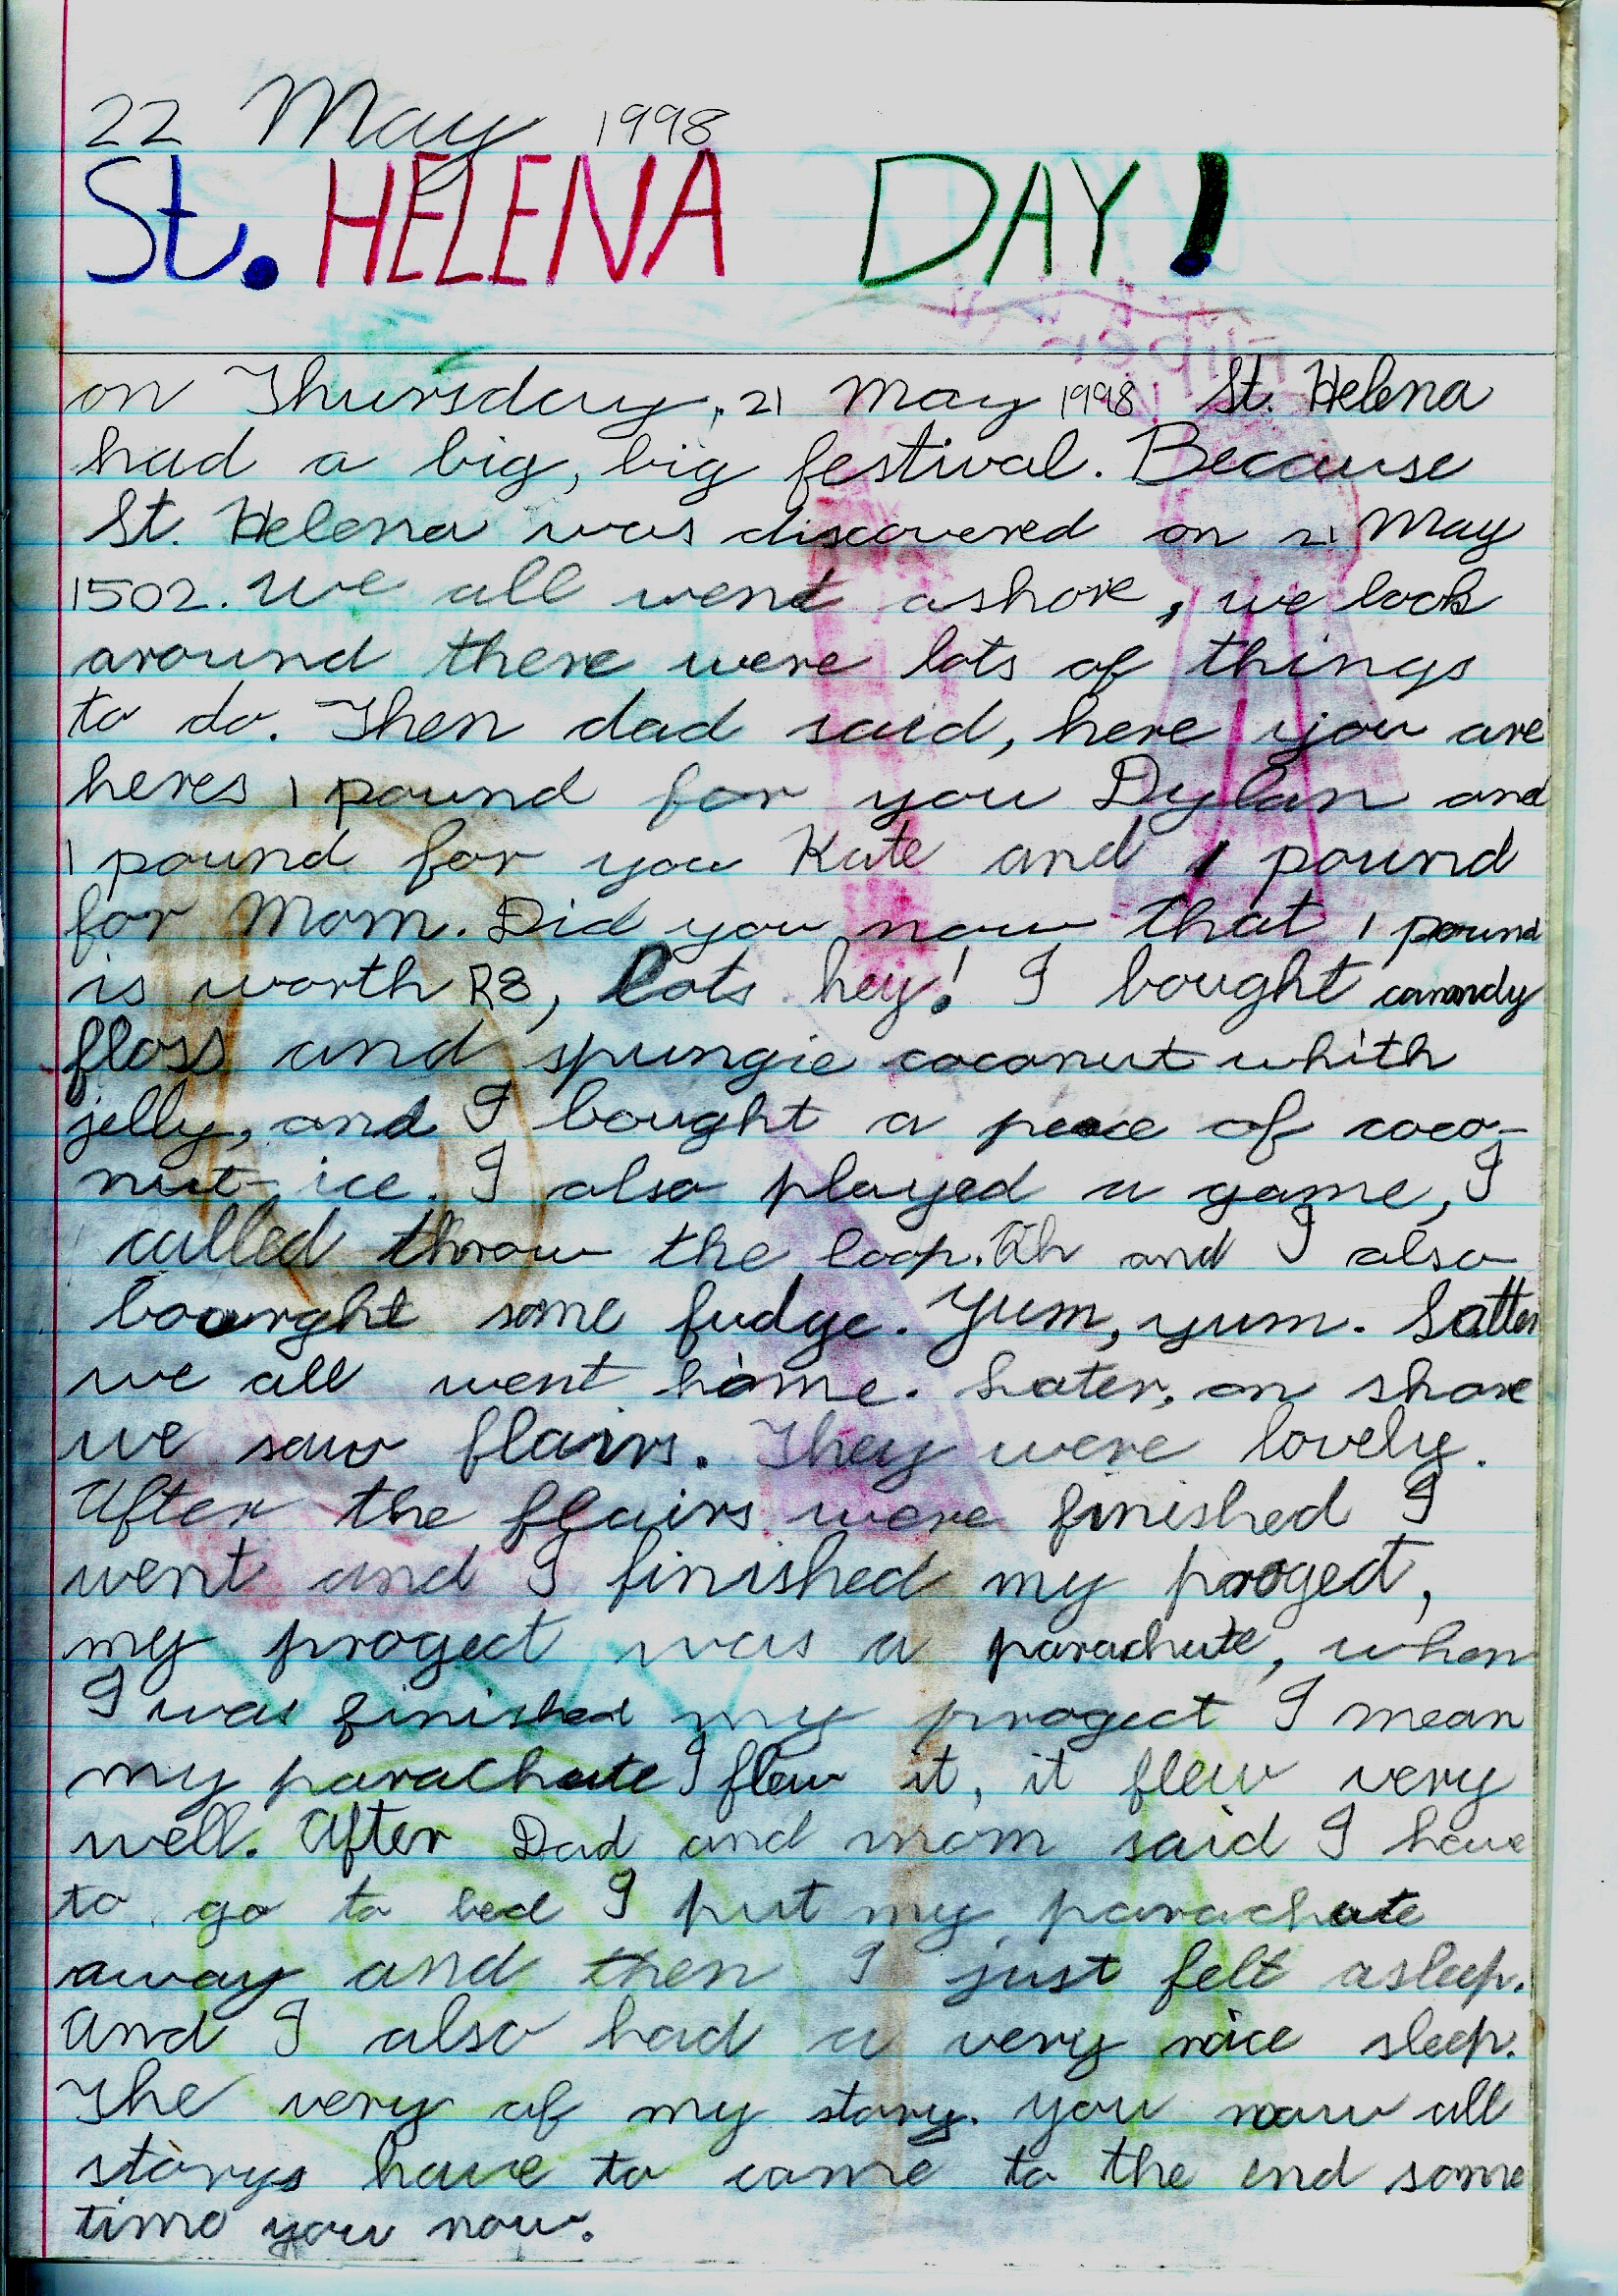 22 May 1998
St. HELENA DAY!
on Thursday, 21 May 1998 St. Helena
had a big, big festival. Because
St. Helena was discovered on 21 May
1502. We all went ashore, we look
around there were lots of things
to do. Then dad said, here you are
heres 1 pound for you Dylan and
1 pound for you Kate and 1 pound
for Mom. Did you now that 1 pound
is worth R8, Lots hey! I bought canndy
floss and spungie coconut whith
jelly, and I bought a peace of coco-
nut-ice. I also played a game, I
called throw the loop. Oh and I also
bought some fudge. Yum, yum. Latter
we all went home. Later, on shore
we saw flairs. They were lovely.
After the flairs were finished I
went and I finished my proged,
my progect was a parachute, when
I was finished my progect I mean
my parachute I flew it, it flew very
well. After Dad and mom said I have
to go to bed I put my parachute
away and then I just felt asleep.
And I also had a very nice sleep.
The very of my story. You now all
storys have to come to the end some
time you now.